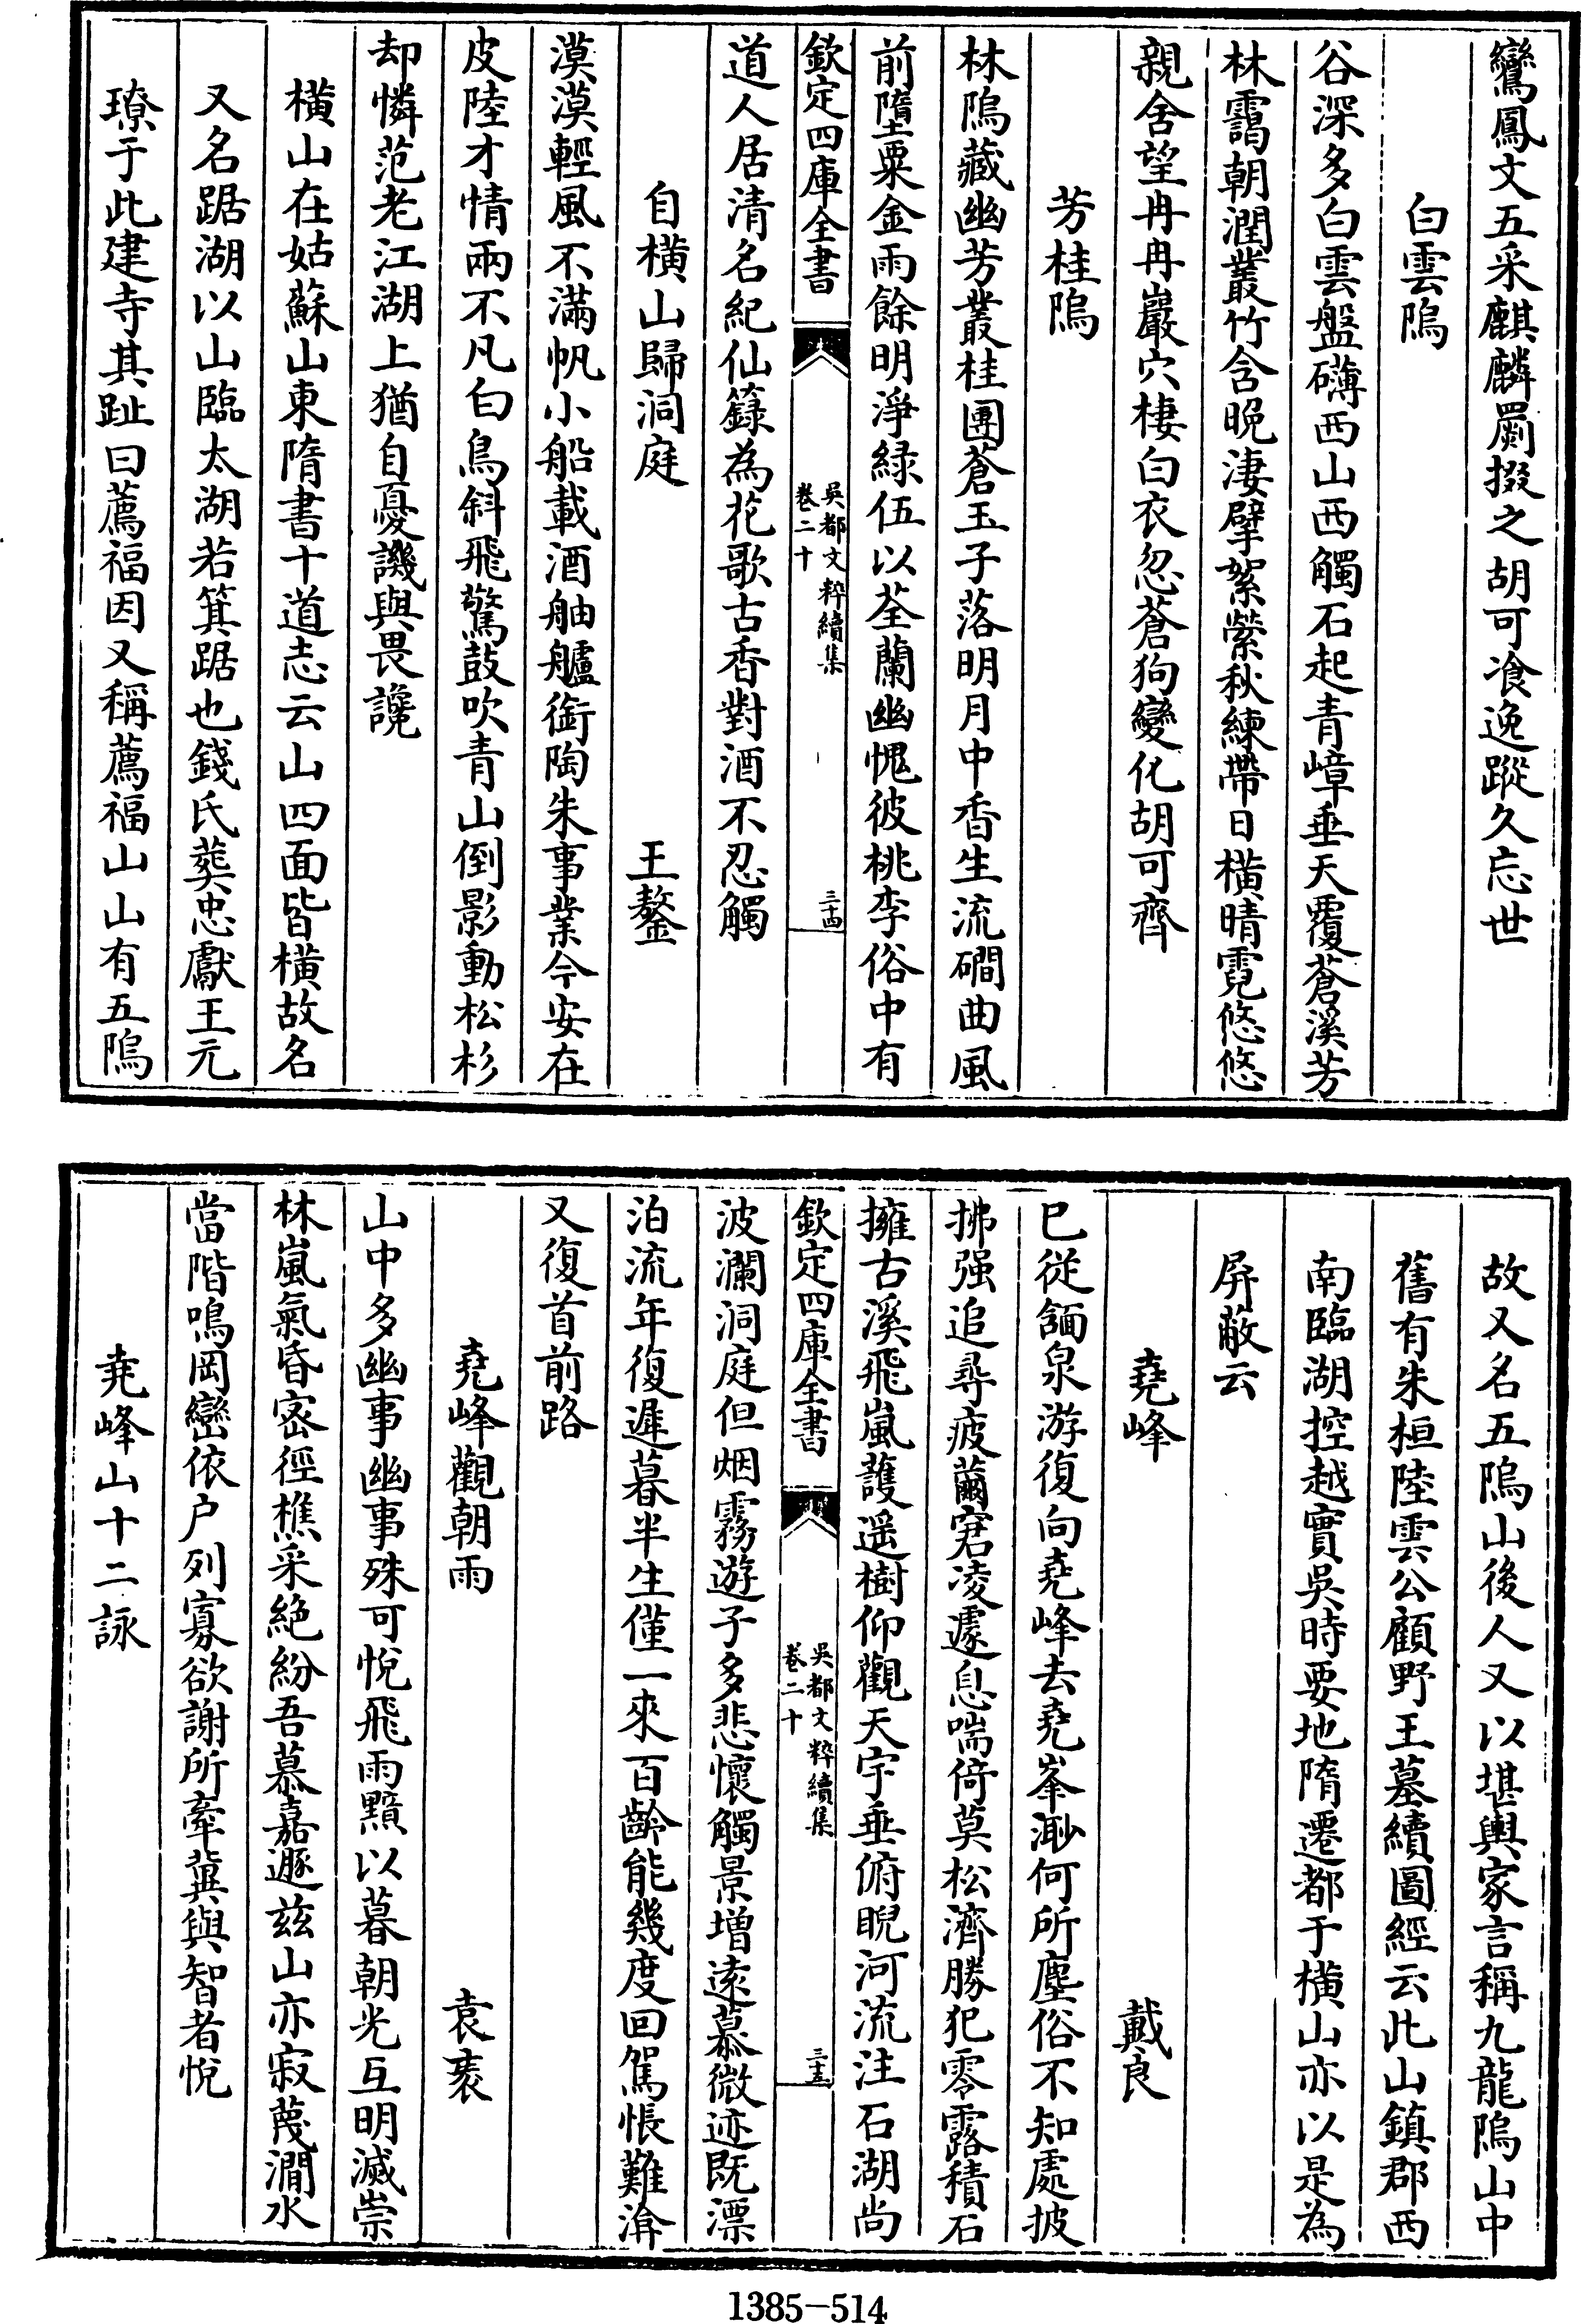 鸞鳳文五采麒麟罽掇之胡可飡逸蹤久忘世
白雲隖
谷深多白雲盤礴西山西觸石起青嶂垂天覆蒼溪芳
林靄朝潤叢竹含晩淒擘絮縈秋練帶日橫晴霓悠悠
親舍望冉冉巖穴棲白衣忽蒼狗變化胡可齊
芳桂隖
林隖藏幽芳叢桂團蒼玉子落明月中香生流磵曲風
前墮粟金雨餘明淨緑伍以荃蘭幽愧彼桃李俗中有
欽定四庫全書
吳都文粹續集
卷二十
三十四
道人居清名紀仙籙為花歌古香對酒不忍觸
自橫山歸洞庭 王鏊
漠漠輕風不滿帆小船載酒舳艫銜陶朱事業今安在
皮陸才情兩不凡白鳥斜飛驚鼓吹青山倒影動松杉
却憐范老江湖上猶自憂譏與畏讒
橫山在姑蘇山東隋書十道志云山四面皆橫故名
又名踞湖以山臨太湖若箕踞也錢氏葬忠獻王元
璙于此建寺其趾曰薦福因又稱薦福山山有五隖
故又名五隖山後人又以堪輿家言稱九龍隖山中
舊有朱桓陸雲公顧野王墓續圖經云此山鎮郡西
南臨湖控越實吳時要地隋遷都于橫山亦以是為
屏蔽云
堯峰 戴良
已從䫌泉游復向堯峰去堯峯渺何所塵俗不知處披
拂强追尋疲薾窘凌遽息喘倚莫松濟勝犯零露積石
擁古溪飛嵐護遥樹仰觀天宇垂俯睨河流注石湖尚
欽定四庫全書
吳都文粹續集
卷二十
三十五
波瀾洞庭但烟霧遊子多悲懷觸景増遠慕微迹既漂
泊流年復遲暮半生僅一來百齡能幾度回駕悵難淹
又復首前路
堯峰觀朝雨 袁袠
山中多幽事幽事殊可悅飛雨黯以暮朝光互明滅崇
林嵐氣昏密徑樵采絶紛吾慕嘉遯兹山亦寂蔑澗水
當階鳴岡巒依户列寡欲謝所牽冀與智者悅
堯峰山十二詠
1385－514